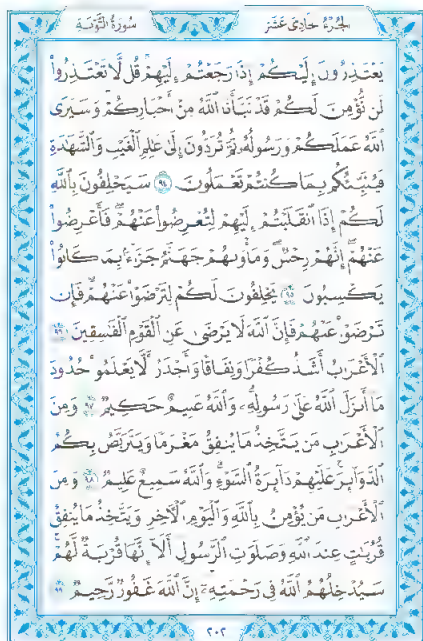 الجزء حادى عشر سورة التوبة
يَعْتَذِرُونَ إِلَيْكُمْ إِذَا رَجَعْتُمْ إِلَيْهِمْ قُل لَّا تَعْتَذِرُوا۟
لَن نُّؤْمِنَ لَكُمْ قَدْ نَبَّأَنَا ٱللَّهُ مِنْ أَخْبَارِكُمْ وَسَيَرَى
ٱللَّهُ عَمَلَكُمْ وَرَسُولُهُۥ ثُمَّ تُرَدُّونَ إِلَىٰ عَٰلِمِ ٱلْغَيْبِ وَٱلشَّهَٰدَةِ
فَيُنَبِّئُكُم بِمَا كُنتُمْ تَعْمَلُونَ ٩٤ سَيَحْلِفُونَ بِٱللَّهِ
لَكُمْ إِذَا ٱنقَلَبْتُمْ إِلَيْهِمْ لِتُعْرِضُوا۟ عَنْهُمْ فَأَعْرِضُوا۟
عَنْهُمْ إِنَّهُمْ رِجْسٌ وَمَأْوَىٰهُمْ جَهَنَّمُ جَزَآءًۢ بِمَا كَانُوا۟
يَكْسِبُونَ ٩٥ يَحْلِفُونَ لَكُمْ لِتَرْضَوْا۟ عَنْهُمْ فَإِن
تَرْضَوْا۟ عَنْهُمْ فَإِنَّ ٱللَّهَ لَا يَرْضَىٰ عَنِ ٱلْقَوْمِ ٱلْفَٰسِقِينَ ٩٦
ٱلْأَعْرَابُ أَشَدُّ كُفْرًا وَنِفَاقًا وَأَجْدَرُ أَلَّا يَعْلَمُوا۟ حُدُودَ
مَآ أَنزَلَ ٱللَّهُ عَلَىٰ رَسُولِهِۦ وَٱللَّهُ عَلِيمٌ حَكِيمٌ ٩٧ وَمِنَ
ٱلْأَعْرَابِ مَن يَتَّخِذُ مَا يُنفِقُ مَغْرَمًا وَيَتَرَبَّصُ بِكُمُ
ٱلدَّوَآئِرَ عَلَيْهِمْ دَآئِرَةُ ٱلسَّوْءِ وَٱللَّهُ سَمِيعٌ عَلِيمٌ ٩٨ وَمِنَ
ٱلْأَعْرَابِ مَن يُؤْمِنُ بِٱللَّهِ وَٱلْيَوْمِ ٱلْءَاخِرِ وَيَتَّخِذُ مَا يُنفِقُ
قُرُبَٰتٍ عِندَ ٱللَّهِ وَصَلَوَٰتِ ٱلرَّسُولِ أَلَآ إِنَّهَا قُرْبَةٌ لَّهُمْ
سَيُدْخِلُهُمُ ٱللَّهُ فِى رَحْمَتِهِۦٓ إِنَّ ٱللَّهَ غَفُورٌ رَّحِيمٌ ٩٩
٢٠٢